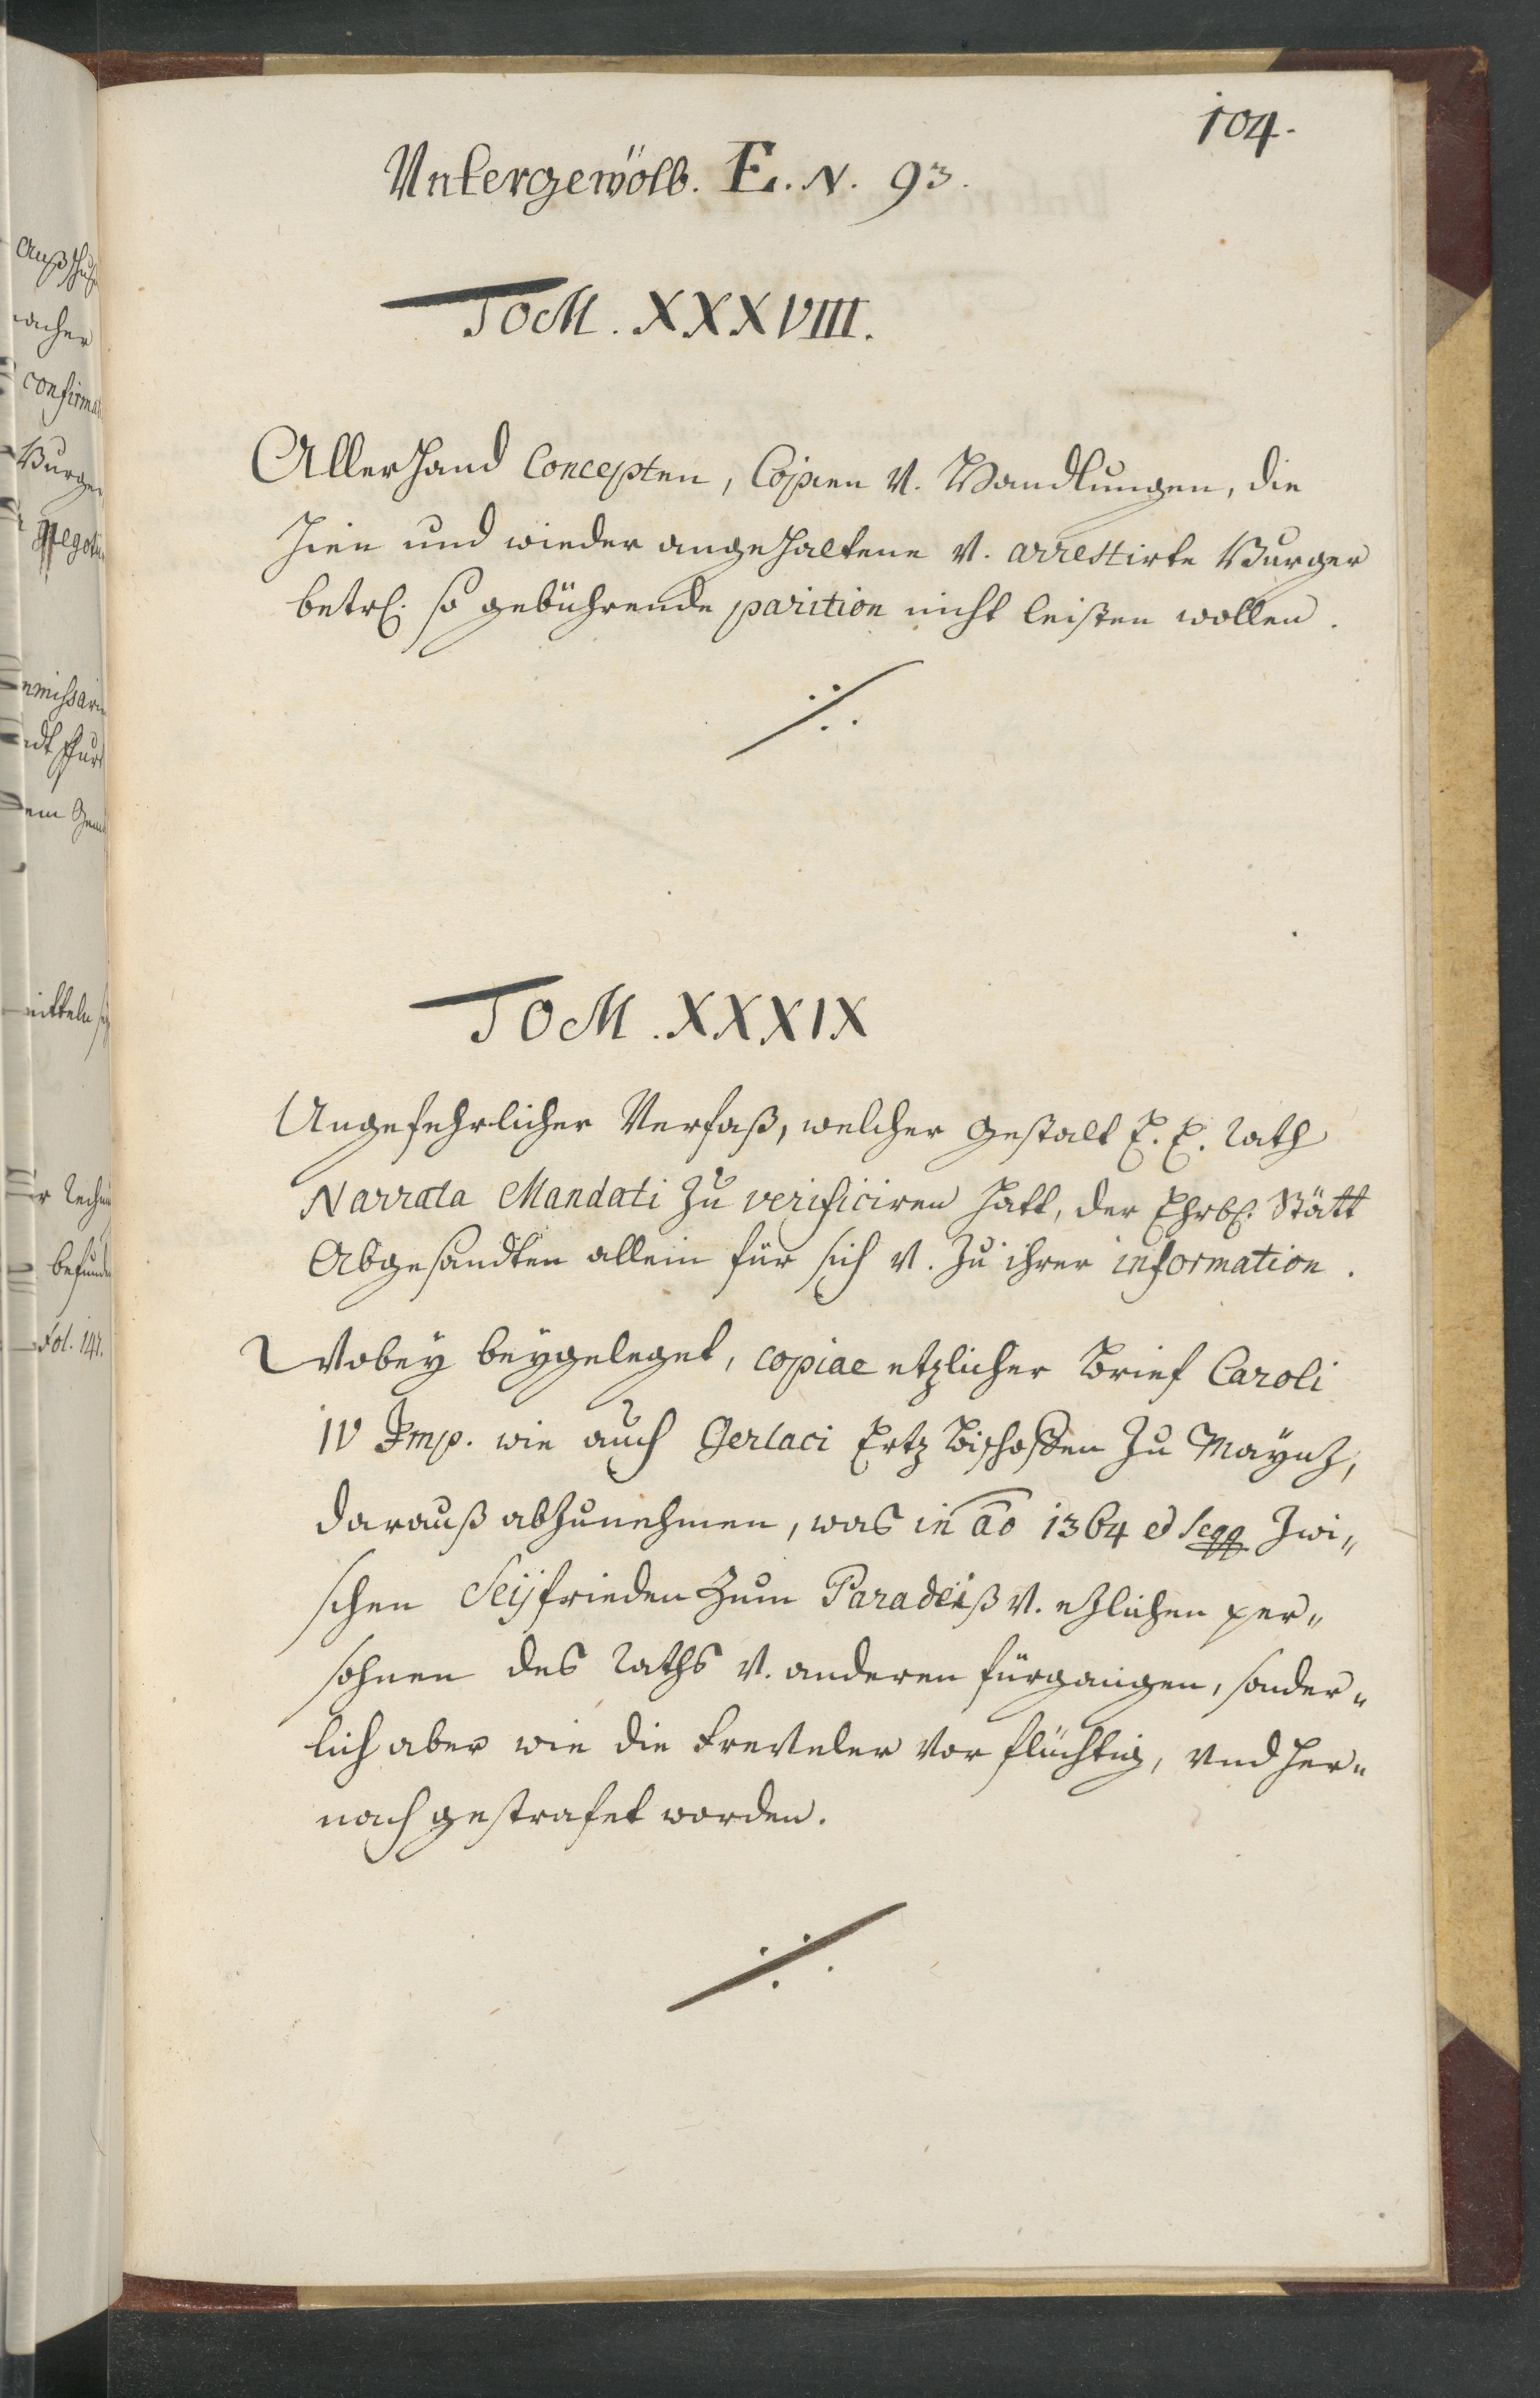 104.
Untergewölb. E. N. 93.
TOM. XXXVIII.
Allerhand Concepten, Copien v. Handlungen, die
hien und wieder angehaltene v. arrestirte Burger
betrf. so gebührende parition nicht leisten wollen.
TOM. XXXIX
Ungefehrlicher Verfaß, welcher gestalt E. E. Rath
Narrata Mandati zu verificiren hatt, der Ehrb. Stätt
Abgesandten allein für sich v. zu ihrer information.
Wobey beygeleget, copiae etzlicher Brief Caroli
IV Imp. wie auch Gerlaci Ertz Bischoffen zu Maynz,
darauß abzunehmen, was in ao 1364 et seqq zwi„
schen Seyfrieden zum Paradeiß v. etzlichen per„
sohnen des Raths v. anderen fürgangen, sonder„
lich aber wie die Freveler vor flüchtig, und her„
nach gestrafet worden.
Außschuß
nacher
confirma
Burger
negoti
mmissari
dem
mitteln
befunde
Fol. 141.